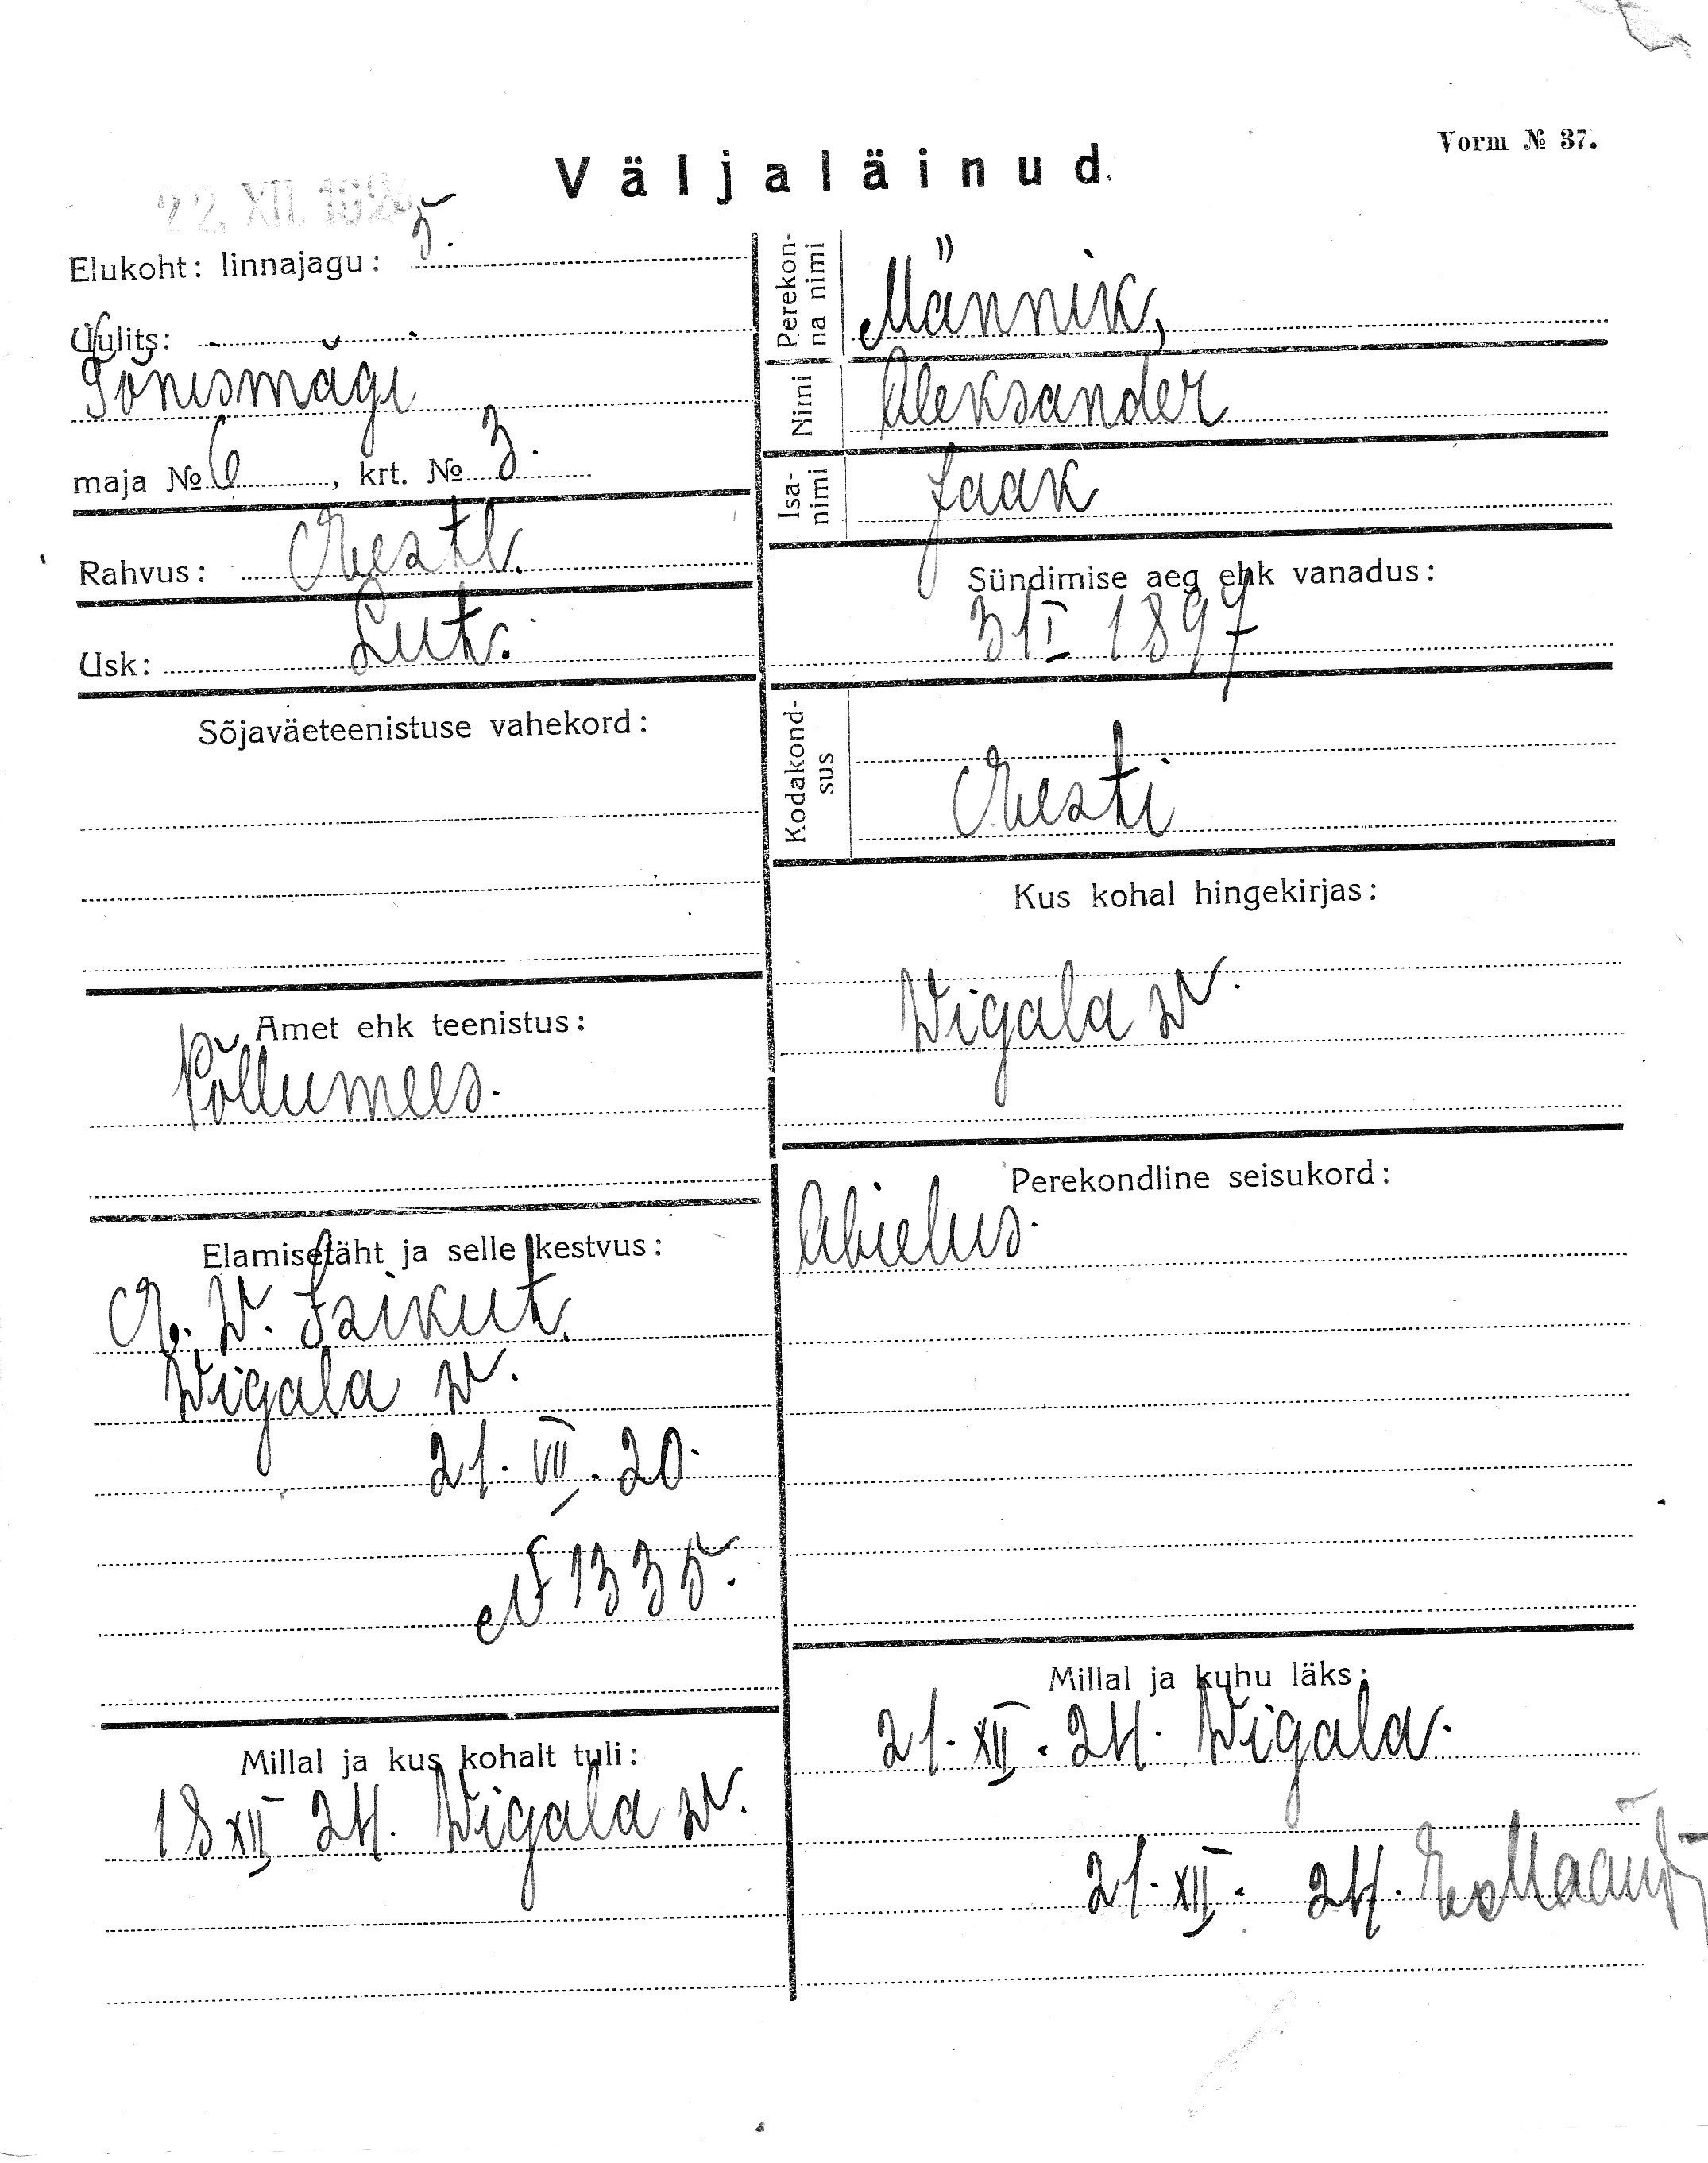 Vorm № 37.
Väljaläinud.
22. XII. 192
Elukoht: linnajagu: 5.
Uulits:
Tõnismägi
maja № 6, krt. № 3.
Rahvus: Eestl.
Usk: Lut.
Sõjaväeteenistuse vahekord:
Amet ehk teenistus:
Põllumees.
Elamisetäht ja selle kestvus:
E. W. Isikut.
Wigala w.
21. VII. 20.
№ 1335.
Millal ja kus kohalt tuli:
18 XII 24. Wigala w.
Perekonna nimi
Männik,
Nimi
Aleksander
Isanimi
Jaak
Sündimise aeg ehk vanadus:
31 I 1897
Kodakondsus
Eesti
Kus kohal hingekirjas:
Wigala w.
Perekondline seisukord:
Abielus.
Millal ja kuhu läks:
21. XII. 24. Wigala.
21. XII. 24.